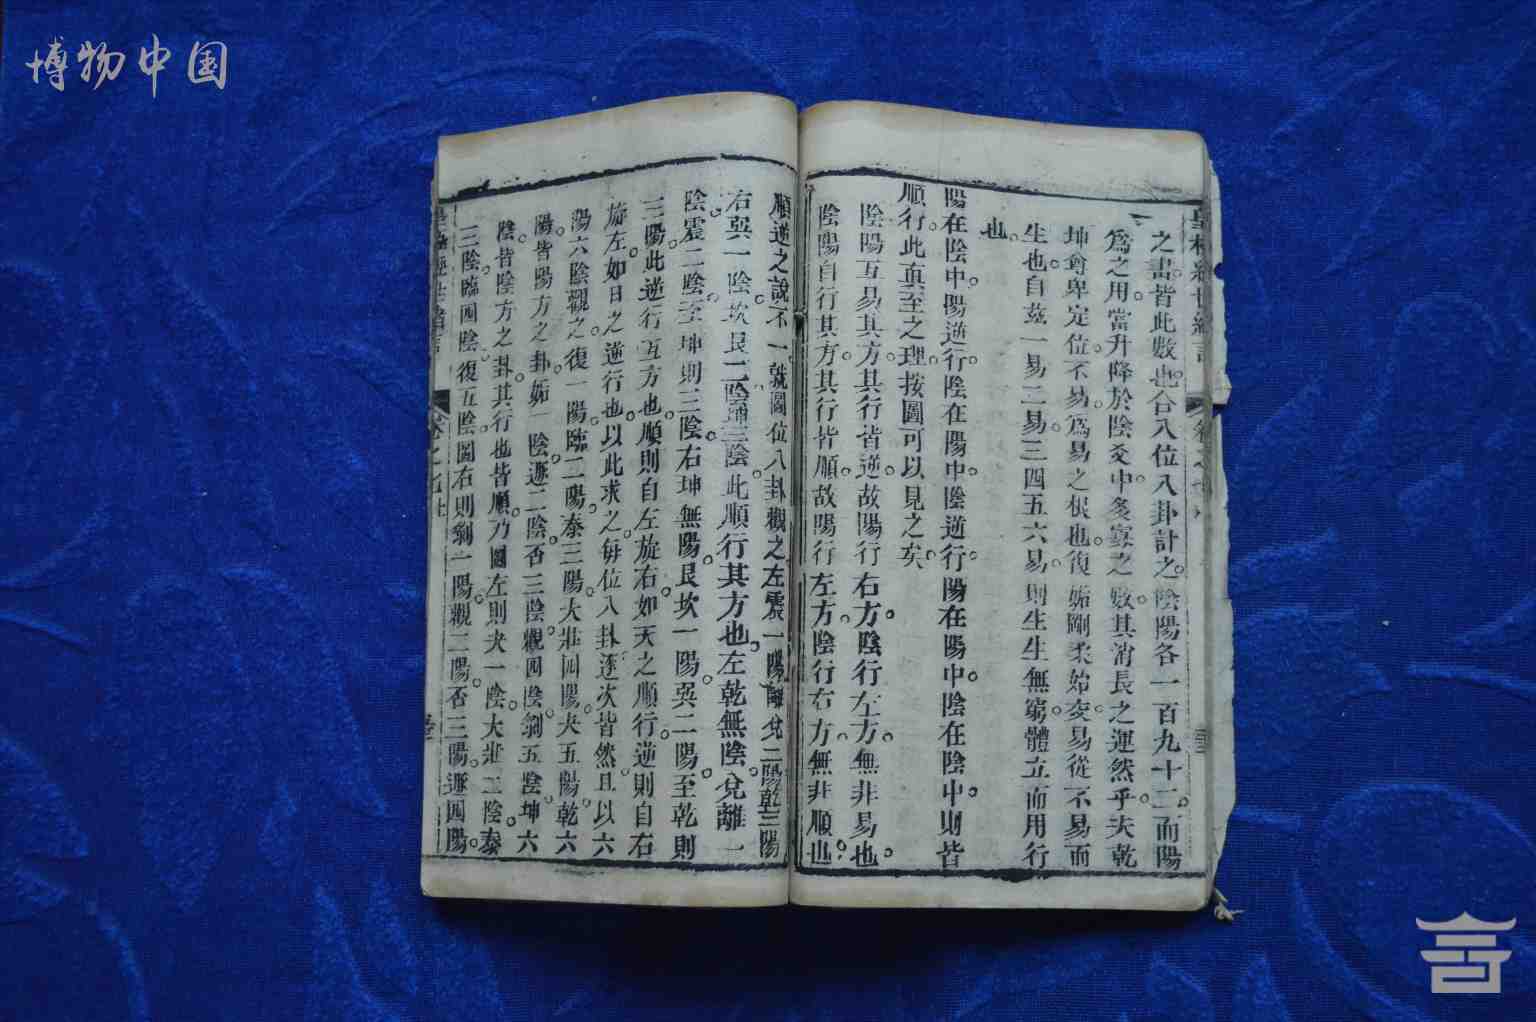 博物中国
之書皆此數也合八位八卦計之陰陽各一百九十二而陽
爲之用當升降於陰爻中爻寡之數其消長之運然乎夫乾
坤尊卑定位不易爲易之根也復姤剛柔始变易從不易而
生也自茲一易二易三四五六易則生生無窮體立而用行
也
陽在陰中陽逆行陰在陽中陰逆行陽在陽中陰在陰中則皆
順行此真至之理按圖可以見之矣
陰陽互易其方其行皆逆故陽行右方陰行左方無非易也
陰陽自行其方其行皆順故陽行左方陰行右方無非順也
順逆之說不一就圖位八卦觀之左震一陽離兌二陽乾三陽
右巽一陰坎艮二陰坤三陰此順行其方也左乾無陰兌離一
陰震二陰至坤則三陰右坤無陽艮坎一陽巽二陽至乾則
三陽此逆行互方也順則自左旋右如天之順行逆則自右
旋左如日之逆行也以此求之每位八卦逐次皆然且以六
陽六陰觀之復一陽臨二陽泰三陽大壯四陽夬五陽乾六
陽皆陽方之卦姤一陰遯二陰否三陰觀四陰剝五陰坤六
陰皆陰方之卦其行也皆順乃圖左則夬一陰大壯二陰泰
三陰臨四陰復五陰圖右則剝一陽觀二陽否三陽遯四陽